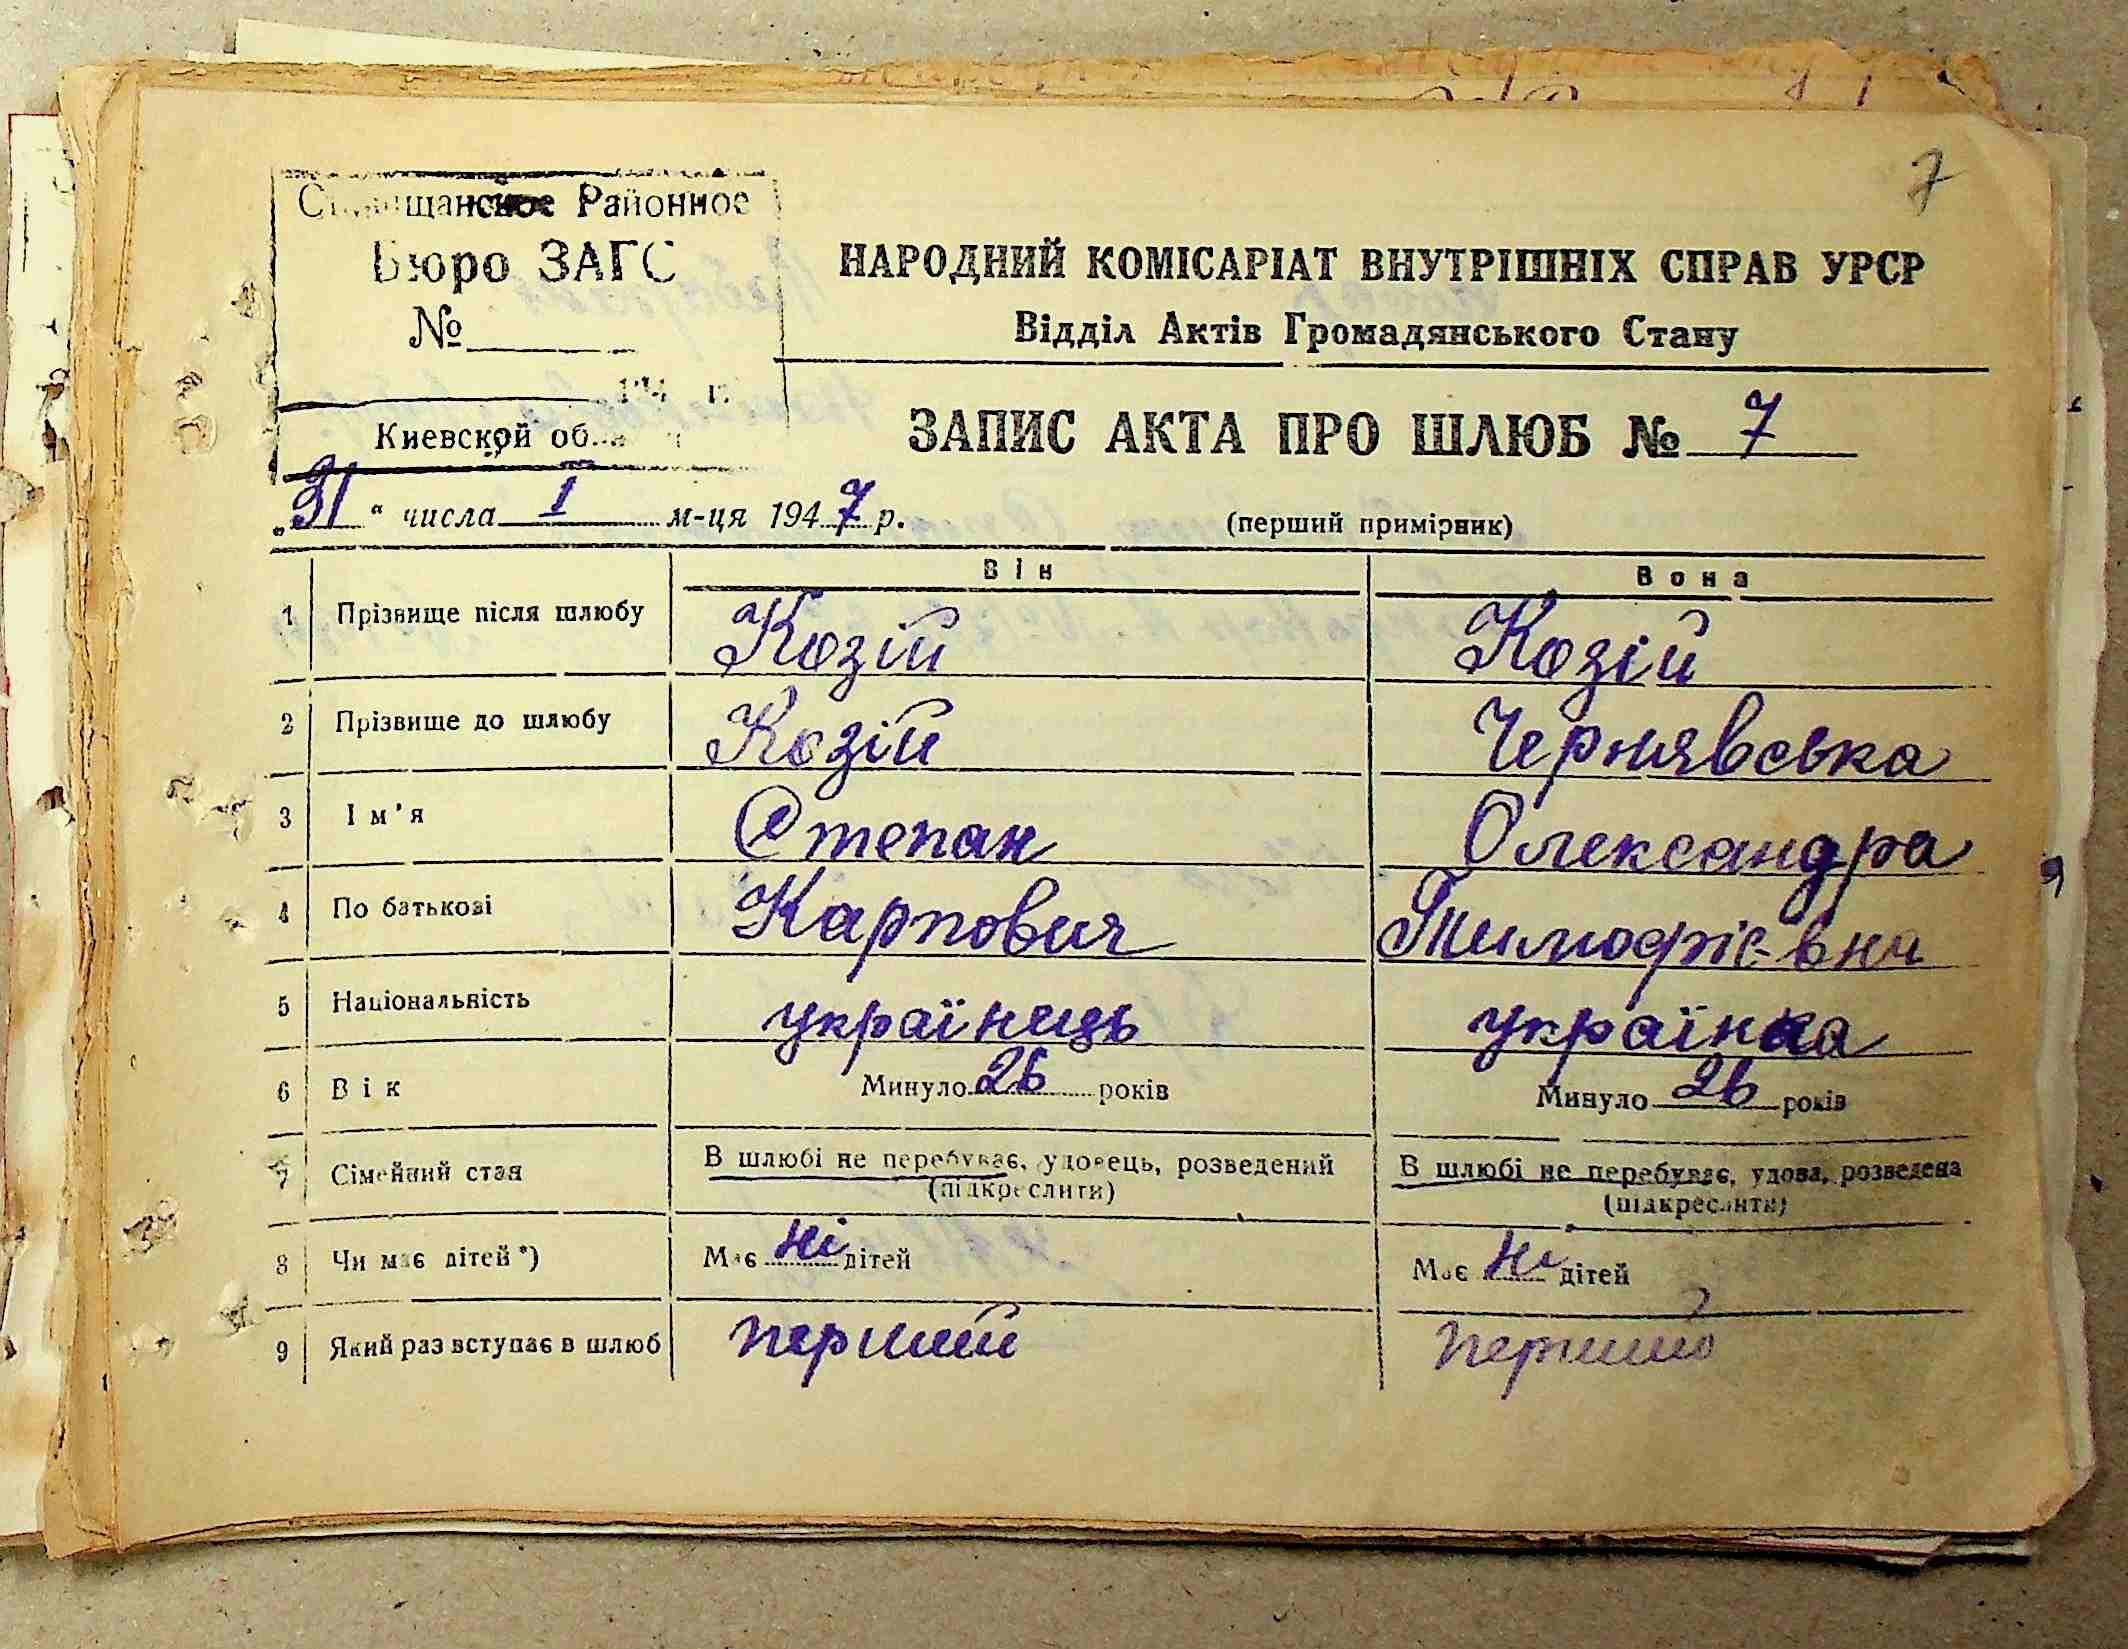 7
Районное
Бюро ЗАГС
№
Киевской
НАРОДНИЙ КОМІСАРІАТ ВНУТРІШНІХ СПРАВ УРСР
Відділ Актів Громадянського Стану
ЗАПИС АКТА ПРО ШЛЮБ № 7
„31" числа I м-ця 1947 р.
(перший примірник)
Він Вона
1 Прізвище після шлюбу Козій Козій
2 Прізвище до шлюбу Козій Чернявська
3 Ім'я Степан Олександра
4 По батькові Карпович Тимофіє-вна
5 Національність українець українка
6 Вік Минуло 26 років Минуло 26 років
7 Сімейний стан В шлюбі не перебуває, удовець, розведений (підкреслити) В шлюбі не перебуває, удова, розведена (підкреслити)
8 Чи має дітей*) Має ні дітей Має ні дітей
9 Який раз вступає в шлюб перший перший